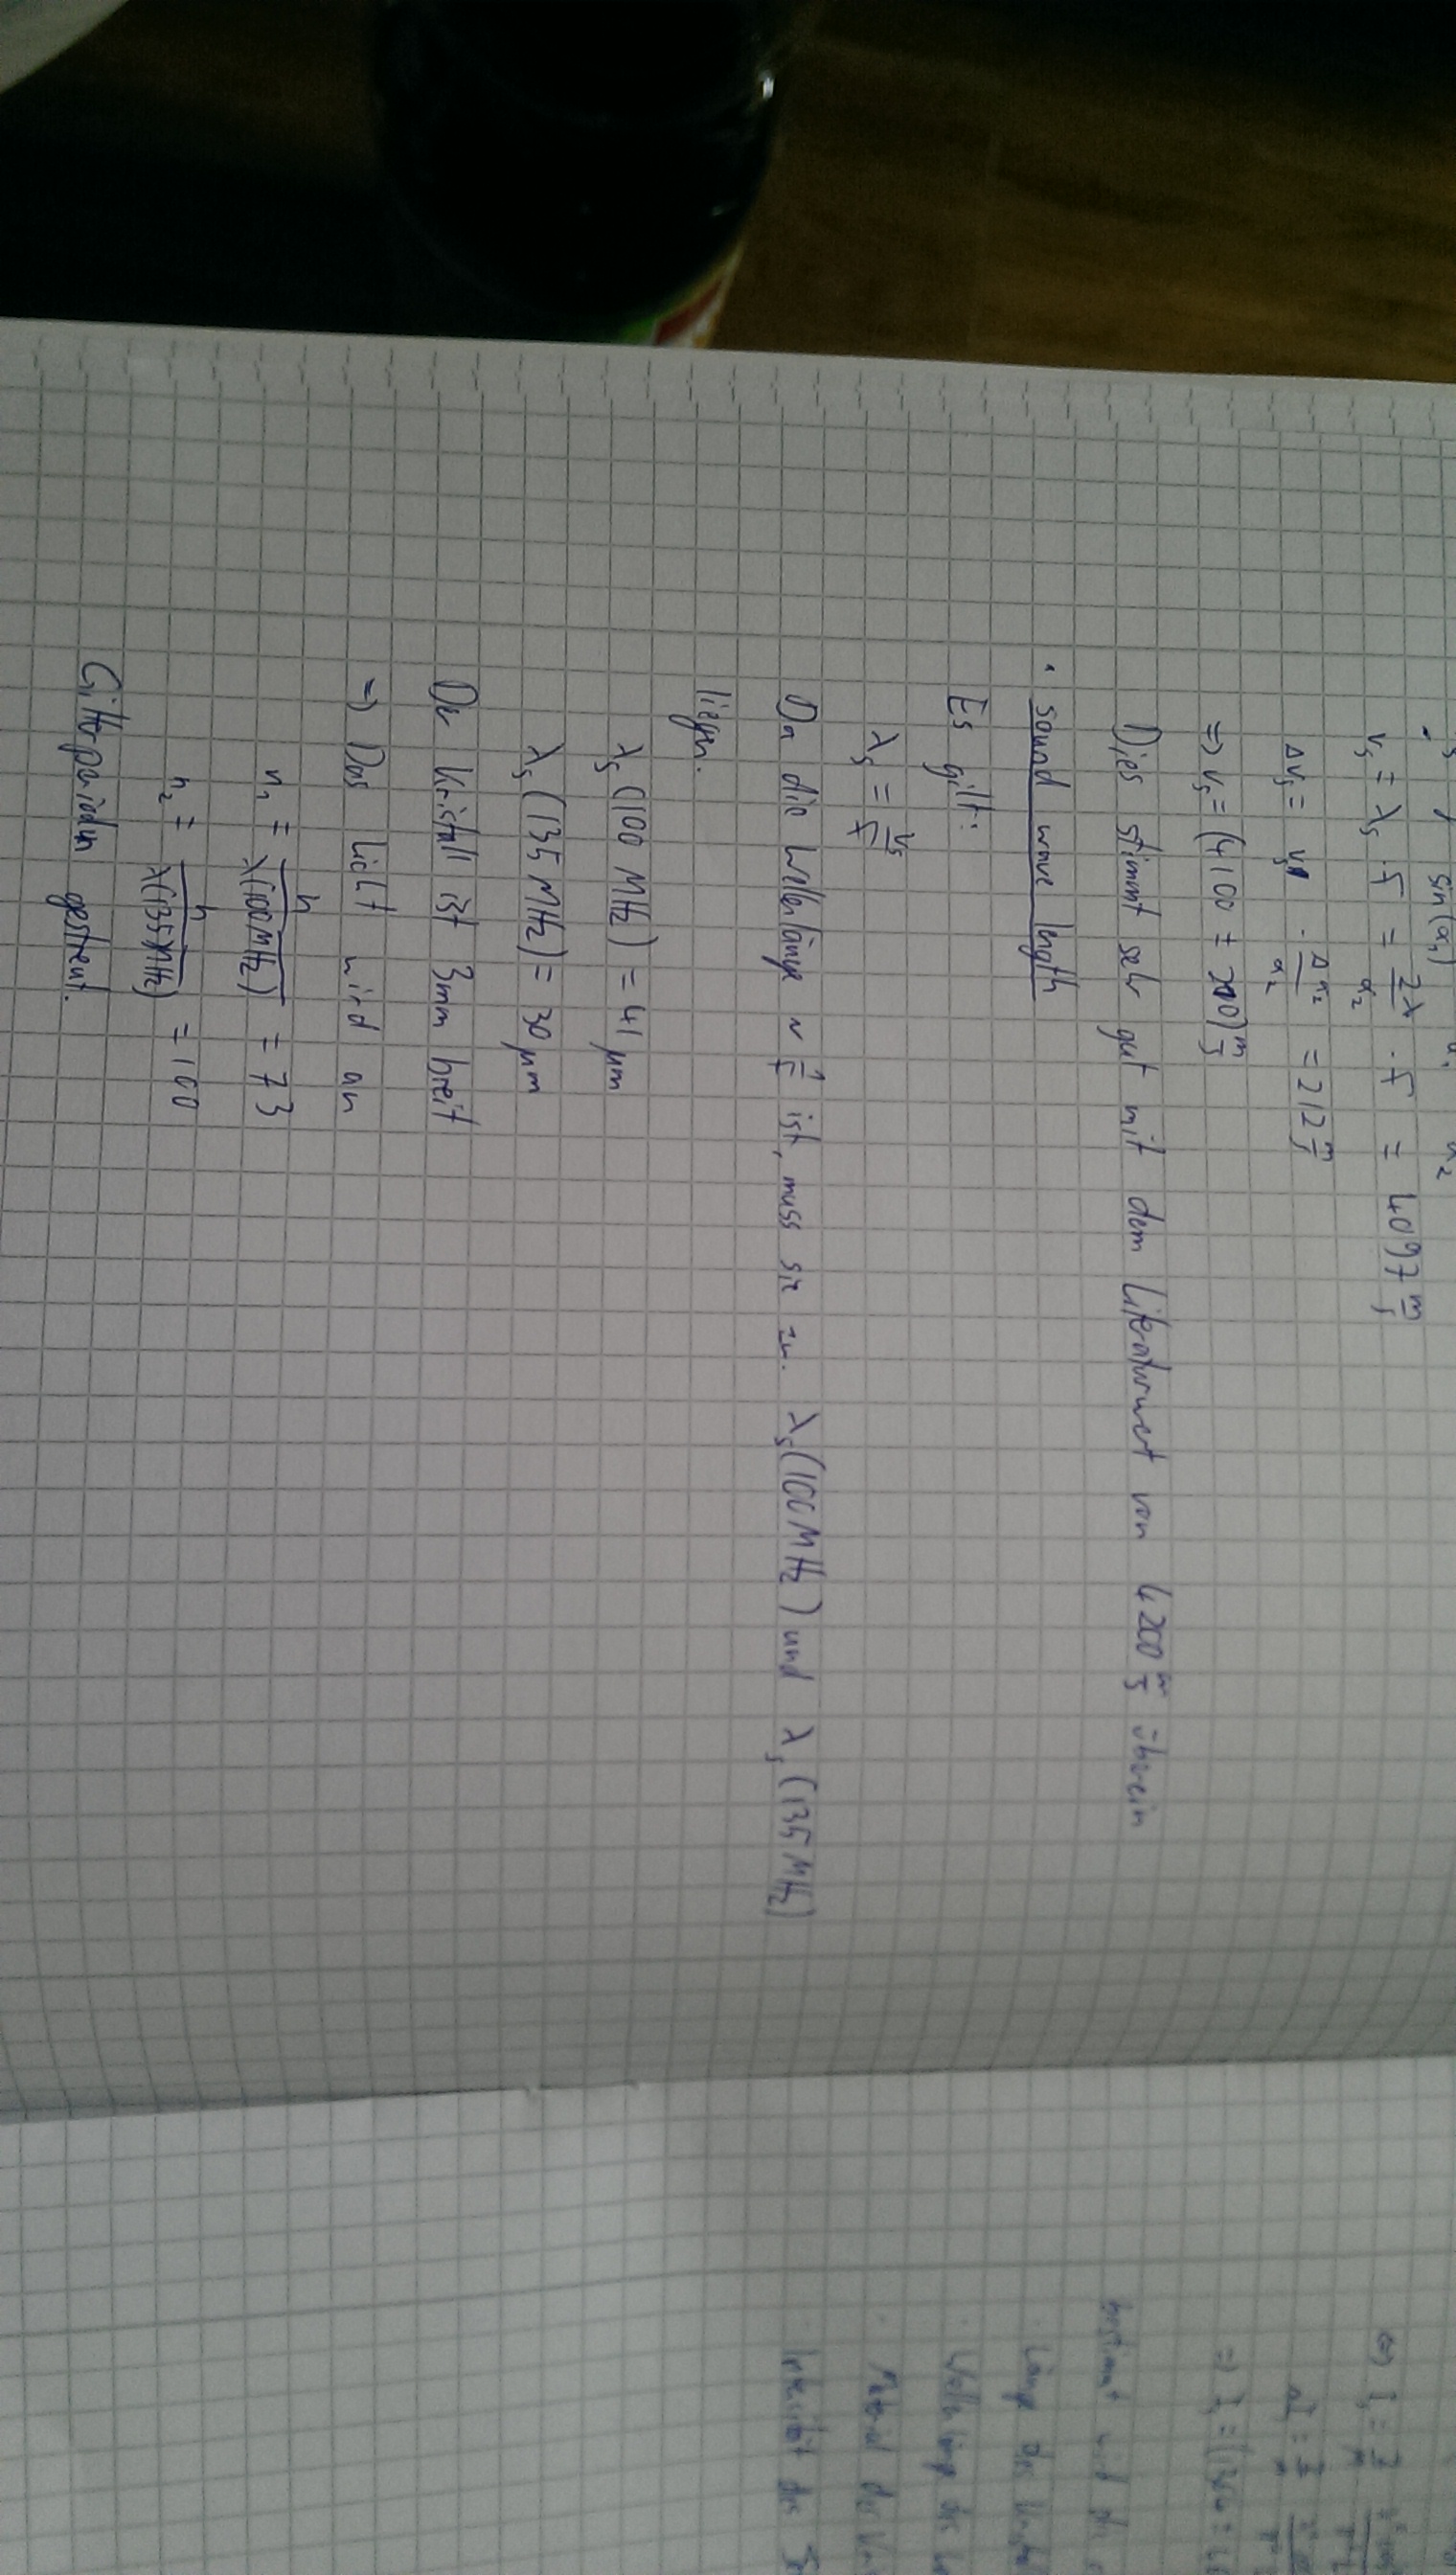 sin(α₁)
v_s = λ_s · f = 2λ/α₂ · f = 4097 m/s
Δv_s = v_s · Δα₂/α₂ = 212 m/s
⇒ v_s = (4100 ± 200) m/s
Dies stimmt sehr gut mit dem Literaturwert von 4200 m/s überein
• sound wave length
Es gilt:
λ_s = v_s/f
Da die Wellenlänge ~ 1/f ist, muss sie zw. λ_s(100 MHz) und λ_s(135 MHz)
liegen.
λ_s(100 MHz) = 41 μm
λ_s(135 MHz) = 30 μm
Der Kristall ist 3mm breit
⇒ Das Licht wird an
n₁ = h/λ(100MHz) = 73
n₂ = h/λ(135MHz) = 100
Gitterperioden gestreut.
bestimmt wird
Länge des
Wellenlänge des
Material des
Intensität des